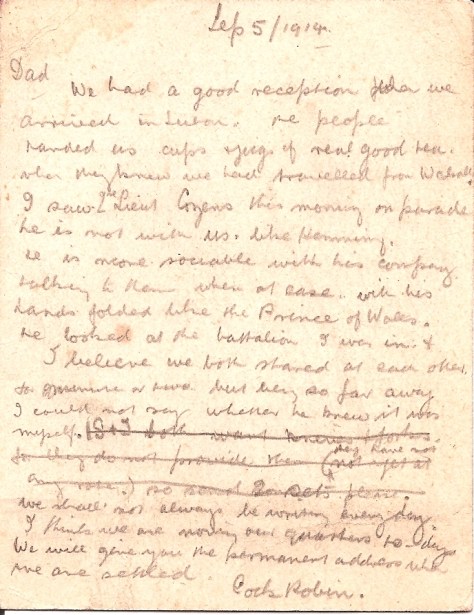 Sep 5/1914
Dad
We had a good reception when we
arrived in Luton. The people
handed us cups & jugs of real good tea.
when they knew we had travelled from Walsall
I saw 2nd Lieut Cozens this morning on parade
he is not with us. like Hemming.
He is more sociable with his company
talking to them when at ease. with his
hands folded like the Prince of Wales.
He looked at the battalion I was in. &
I believe we both stared at each other
for minute or two but being so far away
I could not say whether he knew it was
myself. (S & I both want knives & forks.
for they do not provide them (they have not
not yet at
any rate.) so send 2 sets please.
we shall not always be writing every day
I think we are moving our quarters to-day
We will give you the permanent address when
we are settled
Cock Robin.